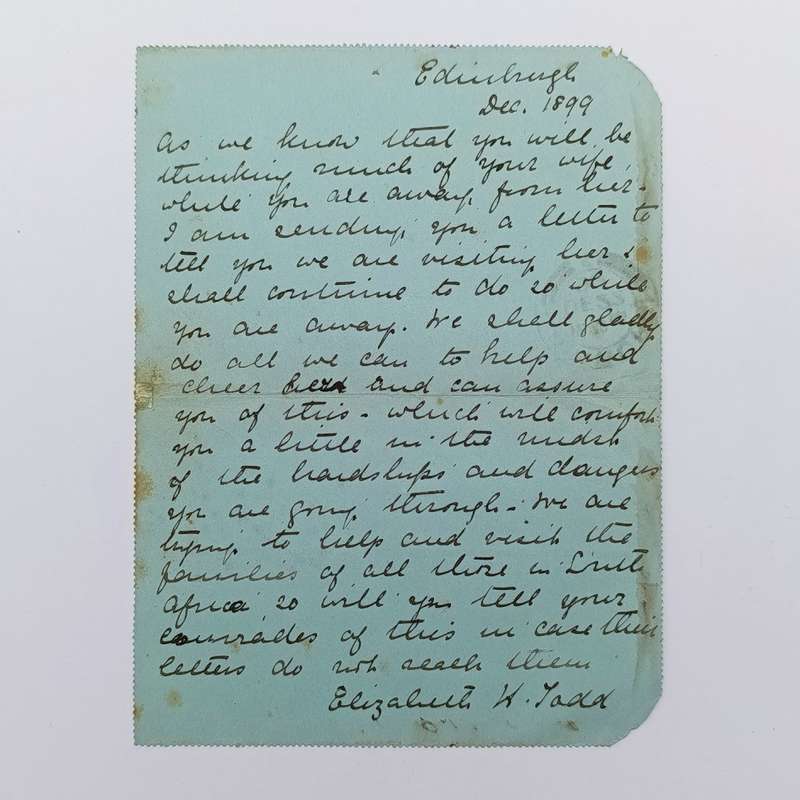 Edinburgh
Dec. 1899
As we know that you will be
thinking much of your wife,
while you are away from her -
I am sending you a letter to
tell you we are visiting her &
shall continue to do so while
you are away. We shall gladly
do all we can to help and
cheer her and can assure
you of this - which will comfort
you a little in the midst
of the hardships and dangers
you are going through - We are
trying to help and visit the
families of all those in South
Africa so will you tell your
comrades of this in case their
letters do not reach them
Elizabeth H. Todd